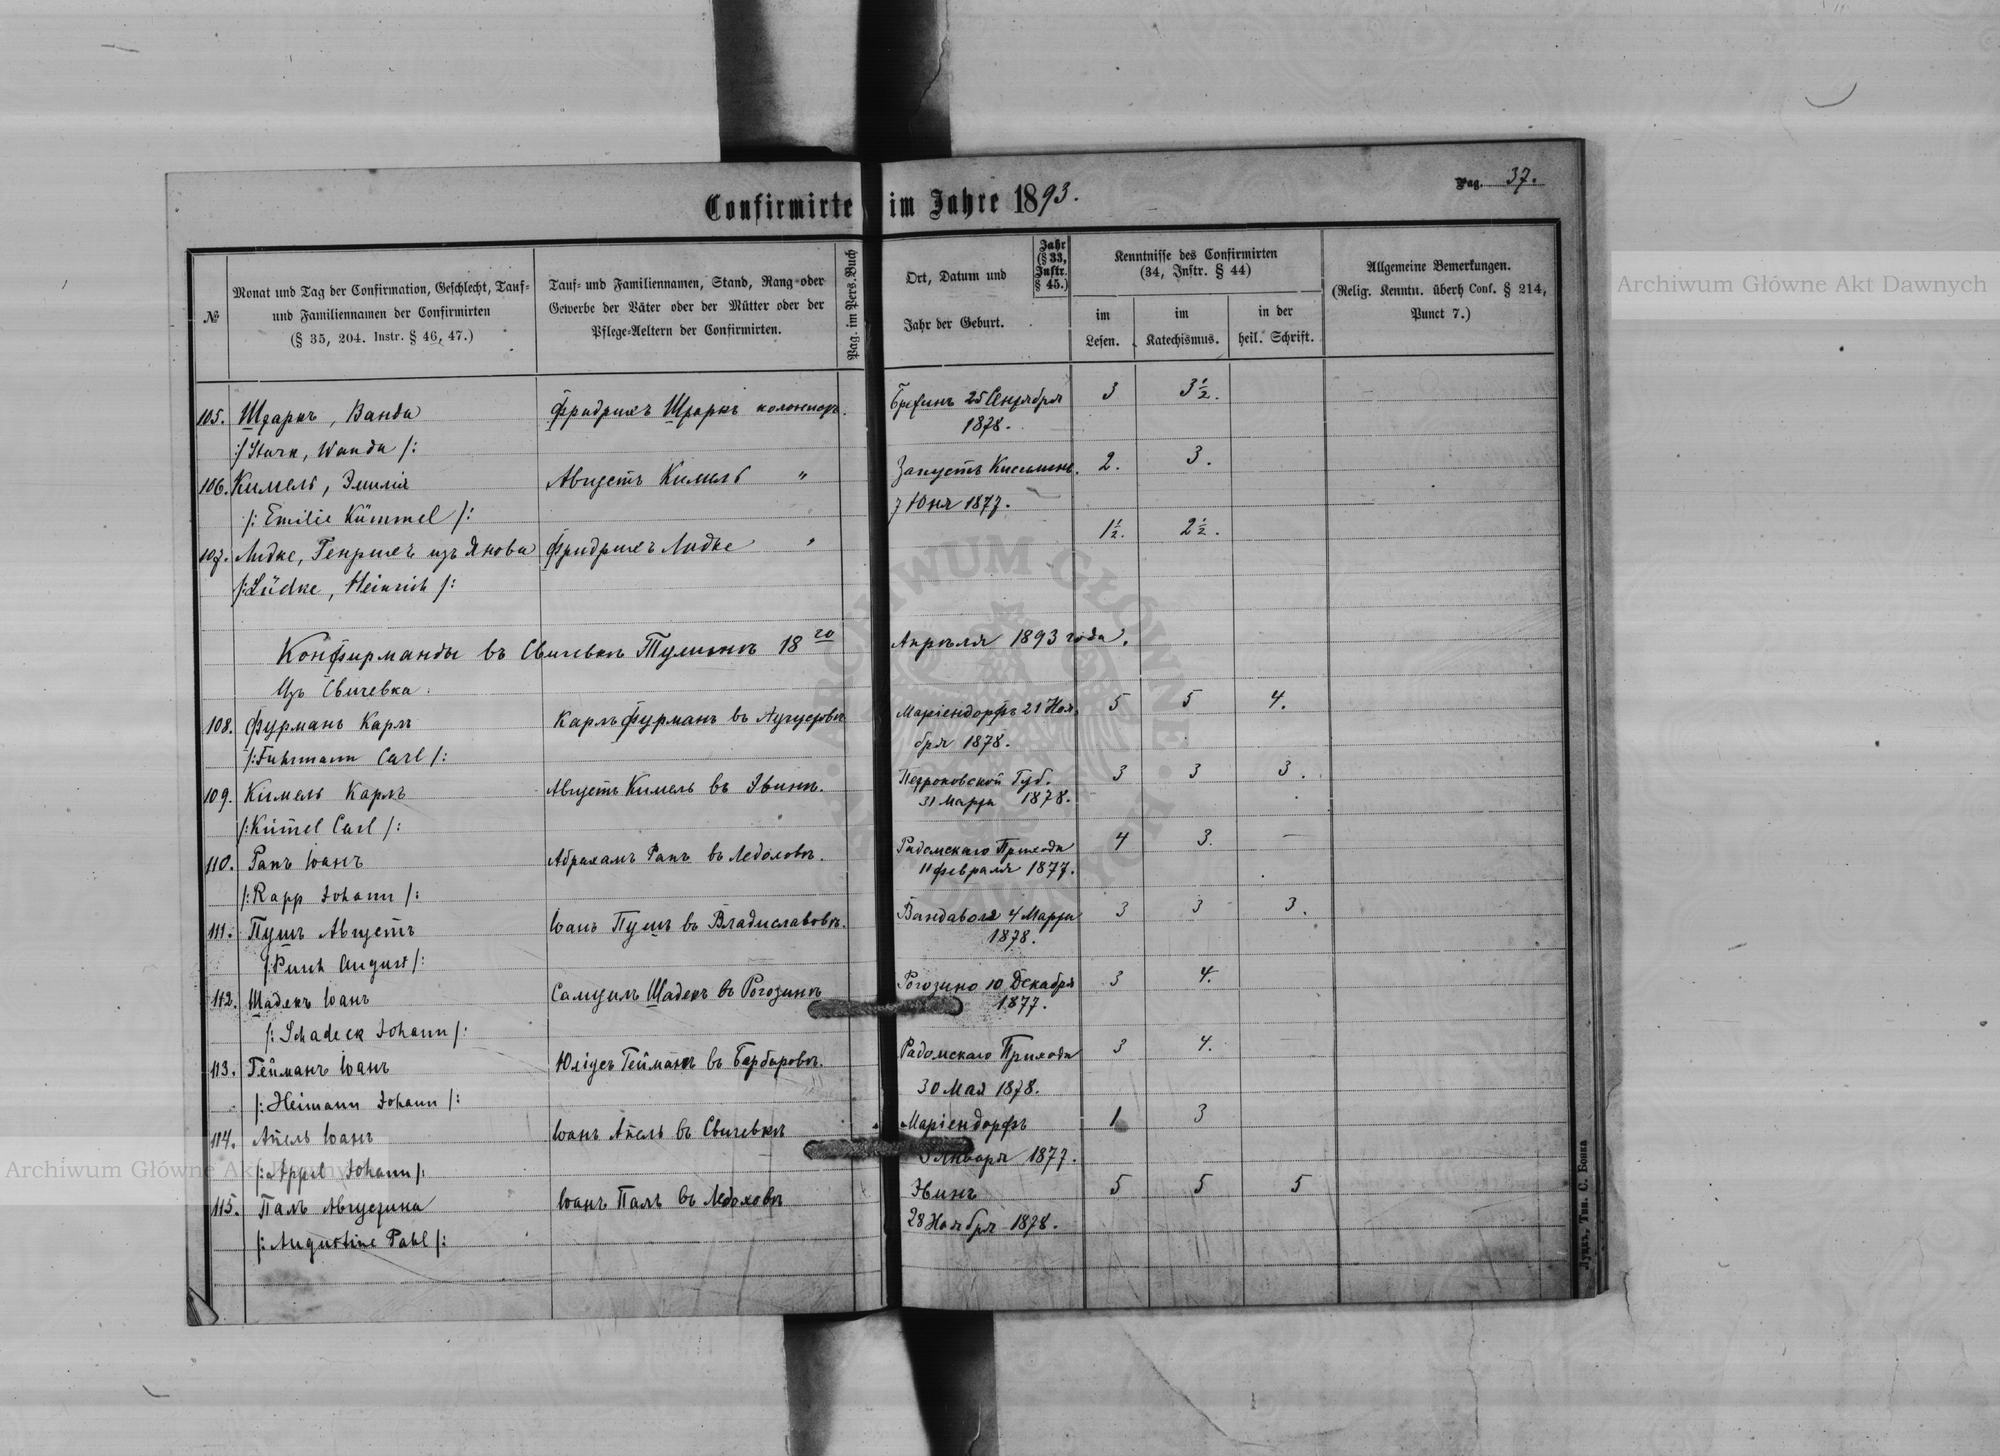 Pag. 37.
Confirmirte im Jahre 1893.
№
Monat und Tag der Confirmation, Geschlecht, Tauf-
und Familiennamen der Confirmirten
(§ 35, 204. Instr. § 46, 47.)
Tauf- und Familiennamen, Stand, Rang- oder
Gewerbe der Väter oder der Mütter oder der
Pflege-Aeltern der Confirmirten.
Pag. im Pers. Buch
Ort, Datum und
Jahr der Geburt.
Jahr
(§ 33,
Instr.
§ 45.)
Kenntnisse des Confirmirten
(34, Instr. § 44)
im
Lesen.
im
Katechismus.
in der
heil. Schrift.
Allgemeine Bemerkungen.
(Relig. Kenntn. überh Conf. § 214,
Punct 7.)
105. Штаркъ, Ванда Фридрихъ Штаркъ колонистъ. 25 Сентября 3 3½.
1878.
/: Stark, Wanda /:
106. Кимель, Эмилія Августъ Кимель " Запустъ 2. 3.
7 Юня 1877.
/: Emilie Kümmel /:
107. Лидке, Генрихъ изъ Янова Фридрихъ Лидке " 1½. 2½.
/: Lüdke, Heinrich /:
Конфирманды въ Свичевкѣ 18го Апрѣля 1893 года.
Изъ Свичевка.
108. Фурманъ Карлъ Карлъ Фурманъ въ Маріендорфъ 21 Ноя- 5 5 4.
бря 1878.
/: Fuhrmann Carl /:
109. Кимель Карлъ Августъ Кимель въ Эвинѣ. Петроковской Губ. 3 3 3.
31 Марта 1878.
/: Kümel Carl /:
110. Рапъ Іоанъ Абрахамъ Рапъ въ Ледоховѣ. Радомскаго Прихода 4 3. —
11 февраля 1877.
/: Rapp Johann /:
111. Пушъ Августъ Іоанъ Пушъ въ Владиславовкѣ. Вандаволя 4 Марта 3 3 3.
1878.
/: Pusch August /:
112. Шадекъ Іоанъ Самуилъ Шадекъ въ Рогозинѣ Рогозино 10 Декабря 3 4.
1877.
/: Schadeck Johann /:
113. Гейманъ Іоанъ Юліусъ Гейманъ въ Барбаровкѣ. Радомскаго Прихода 3 4.
30 Мая 1878.
/: Heimann Johann /:
114. Апель Іоанъ Іоанъ Апель въ Свичевкѣ Маріендорфъ 1 3
Января 1877.
/: Appel Johann /:
115. Паль Августина Іоанъ Паль въ Ледоховѣ Эвинъ 5 5 5
28 Ноября 1878.
/: Augustine Pahl /:
Луцкъ, Тип. С. Бокка
Archiwum Główne Akt Dawnych
Archiwum Główne Akt Dawnych
ARCHIWUM GŁÓWNE AKT DAWNYCH